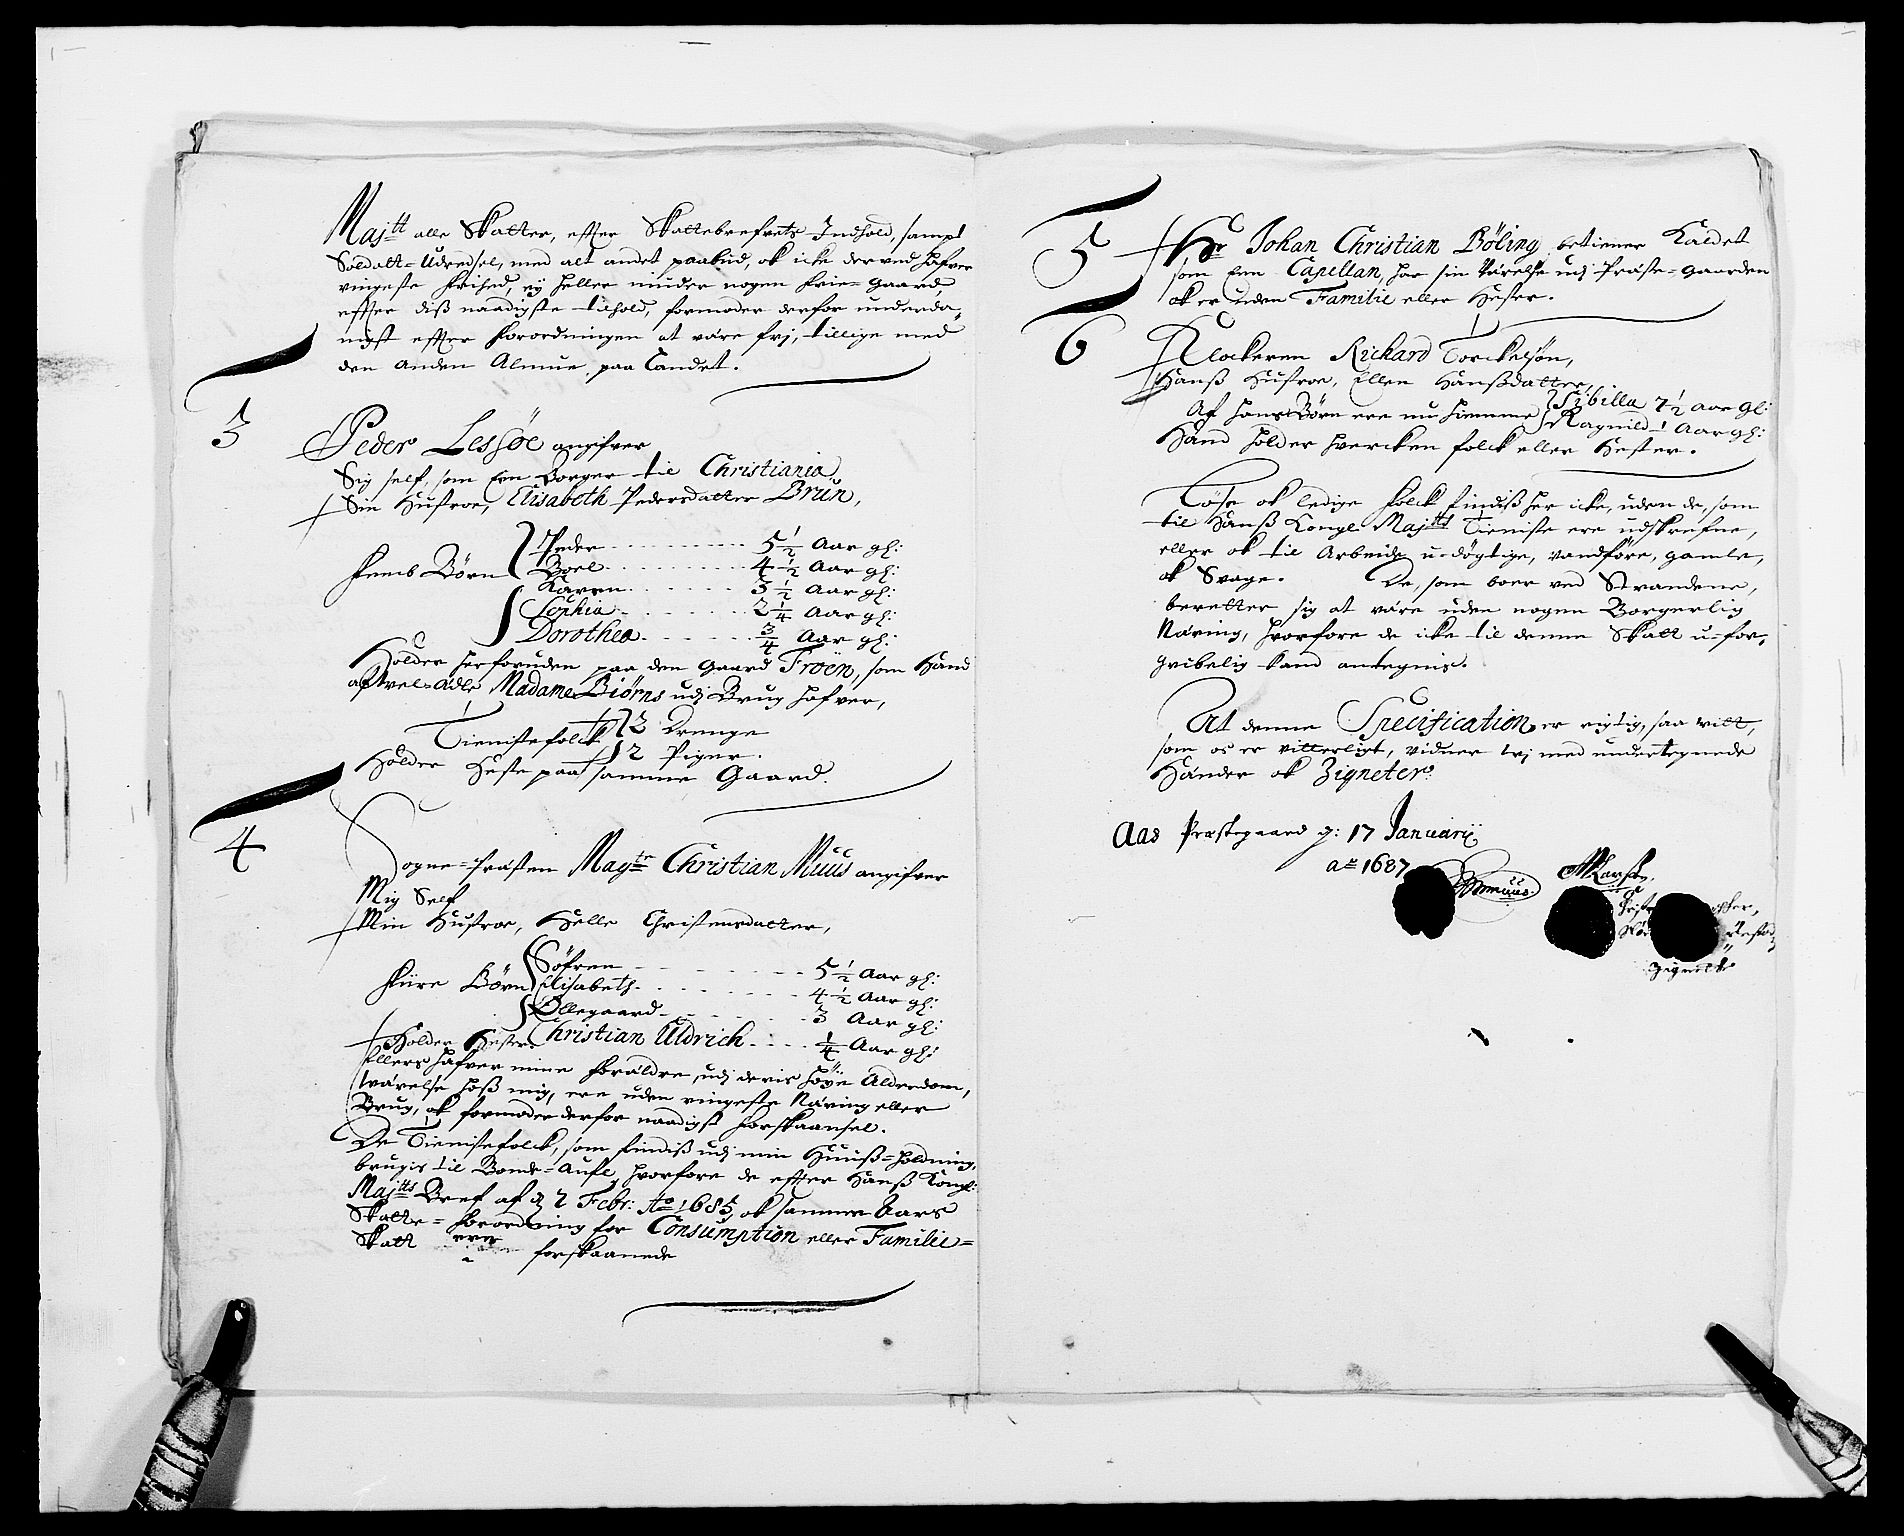 Majtt alle Skatter, effter Skattebrefvets Indhold, sampt
Soldatt-Udredsel, med alt andet paabud, ok icke derved hafver
ringeste frihed, ey heller ninder nogen frie-gaard,
effter diß naadigste tilhold, formoder derfor underda-
nigst effter forordningen at være fri, tillige med
den anden Almue paa Landet.
3
Peder Lessøe angifver
Sig self, som Een Borger til Christiania
Sin Hustroe, Elisabeth Pedersdatter Brün,
Peder 5 1/2 Aar gl:
Boel 4 1/2 Aar gl:
Femb Børn Karen 3 1/2 Aar gl:
Sophia 2 1/4 Aar gl:
Dorothea 3/4 Aar gl:
Holder herforuden paa den Gaard Froen, som Hand
aff Vel-Adle Madame Biørns udj Brug hafver,
Tienistefolck 2 Drenge
2 Piger.
Holder Heste paa samme Gaard.
4
Sogne-Præsten Magr Christian Muus angifver
Mig Self
Min Hustroe, Helle Christensdatter,
Søfren 5 1/2 Aar gl:
Fiire Børn Elisabeth 4 1/2 Aar gl:
Øllegaard 3 Aar gl:
Christian Uldrich 1/4 Aar gl:
Holder Hester.
Ellers hafver mine forældre, udj deris høye Alderdom,
værelse hoß mig, ere uden ringeste Næring eller
Brug, ok formoder derfor naadigst forskaansel.
De Tienistefolck, som findiß udj min Huuß-holdning,
brugis til Bonde-Aufl, hvorfore de effter Hanß Kongl:
Majtts Bref af d 7 Febr: Ao 1685, ok samme Aars
Skatte-forordning for Consumption eller Familie-
Skatt ere forskaanede
5
Hr Johan Christian Böling, betiener Kaldet
som Een Capellan, har sin Værelse udj Præste-gaarden
ok er uden Familie eller Hester.
6
Klockeren Richard Torckelsøn,
Hanß Hustroe, Ellen Hanßdatter,
Af hans Børn ere nu hiemme Sibilla 7 1/2 Aar gl:
Ragnild 1 Aar gl:
Hand holder hvercken folck eller Hester.
Løse ok ledige folck findiß her icke, uden de, som
til Hanß Kongl Majtts Tieniste ere udskrefne,
eller ok til Arbeide u-døgtige, vandføre, gamle,
ok Svage. De, som boer ved Strandene,
beretter sig at være uden nogen Borgerlig
Næring, hvorfore de icke til denne Skatt u-for-
gribelig kand antegnis.
At denne Specification er rigtig, saa vitt,
som os er vitterligt, vidner wj med undertegnede
Hænder ok Zigneter.
Aas Præstegaard d: 17 Januarij
ao 1687
CMmuus.
Zignete